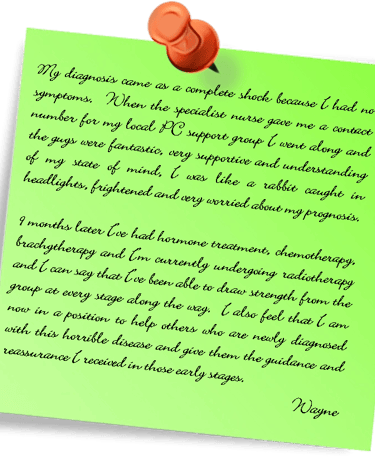 My diagnosis came as a complete shock because I had no
symptoms. When the specialist nurse gave me a contact
number for my local PC support group I went along and
the guys were fantastic, very supportive and understanding
of my state of mind, I was like a rabbit caught in
headlights, frightened and very worried about my prognosis.
9 months later I've had hormone treatment, chemotherapy,
brachytherapy and I'm currently undergoing radiotherapy
and I can say that I've been able to draw strength from the
group at every stage along the way. I also feel that I am
now in a position to help others who are newly diagnosed
with this horrible disease and give them the guidance and
reassurance I received in those early stages.
Wayne